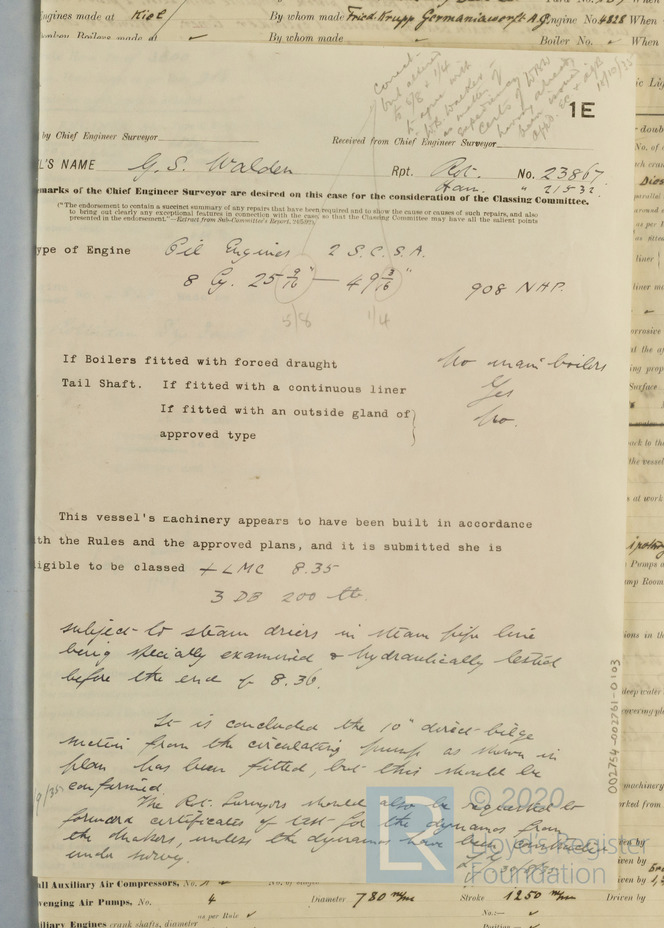 ngines made at Kiel By whom made Fried. Krupp Germaniawerft A.G. Engine No. 4828 When
By whom made Boiler No. When
Correct
but altered
to 5/8 & 1/4
to agree with
1E
by Chief Engineer Surveyor Received from Chief Engineer Surveyor
L'S NAME G. S. Walden Rpt. Rot. No. 23867
Ham. " 21532
emarks of the Chief Engineer Surveyor are desired on this case for the consideration of the Classing Committee.
(*The endorsement to contain a succinct summary of any repairs that have been required and to show the cause or causes of such repairs, and also
to bring out clearly any exceptional features in connection with the case, so that the Classing Committee may have all the salient points
presented in the endorsement."—Extract from Sub-Committee's Report,
ype of Engine Oil Engines 2 S.C.S.A.
8 Cy. 25 9/16" — 49 3/16" 908 NHP.
5/8 1/4
If Boilers fitted with forced draught No main boilers
Tail Shaft. If fitted with a continuous liner Yes
If fitted with an outside gland of No.
approved type
This vessel's machinery appears to have been built in accordance
th the Rules and the approved plans, and it is submitted she is
igible to be classed + LMC 8.35
3 DB 200 lb.
subject to steam driers in steam pipe line
being specially examined & hydraulically tested
before the end of 8.36.
It is concluded the 10" direct bilge
suction from the circulating pump as shown in
plan has been fitted, but this should be
confirmed.
9/35
The Rot. Surveyors should also be requested to
forward certificates of test for the dynamos from
the makers, unless the dynamos have been constructed
under survey.
002754-002761-0103
LR © 2020
Lloyd's Register
Foundation
ll Auxiliary Air Compressors, No.
venging Air Pumps, No. 4 Diameter 780 m/m Stroke 1250 m/m Driven by
iliary Engines crank shafts, diameter as per Rule No.
Position